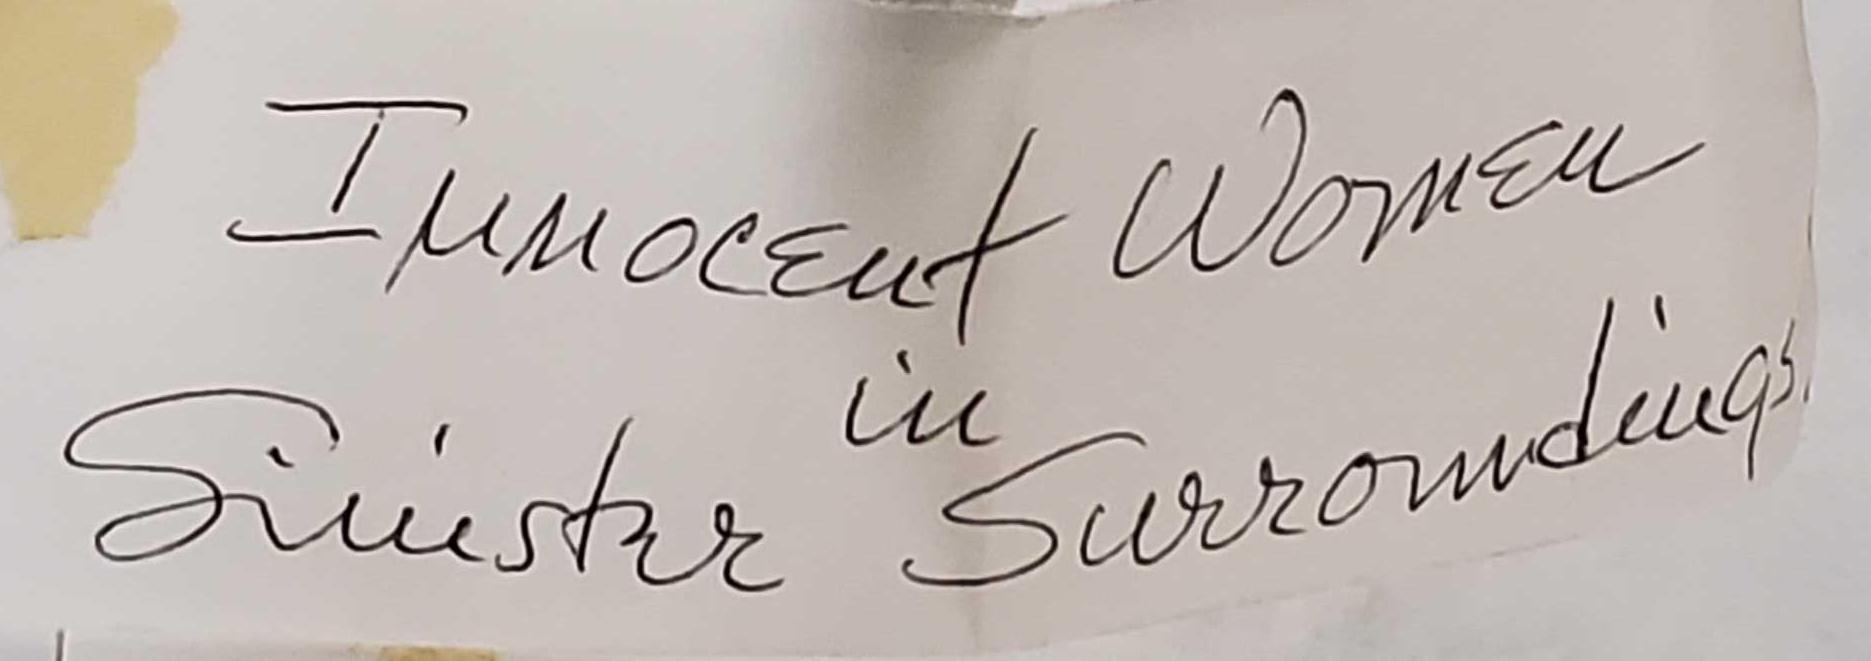 Innocent Women
in
Sinister Surroundings.